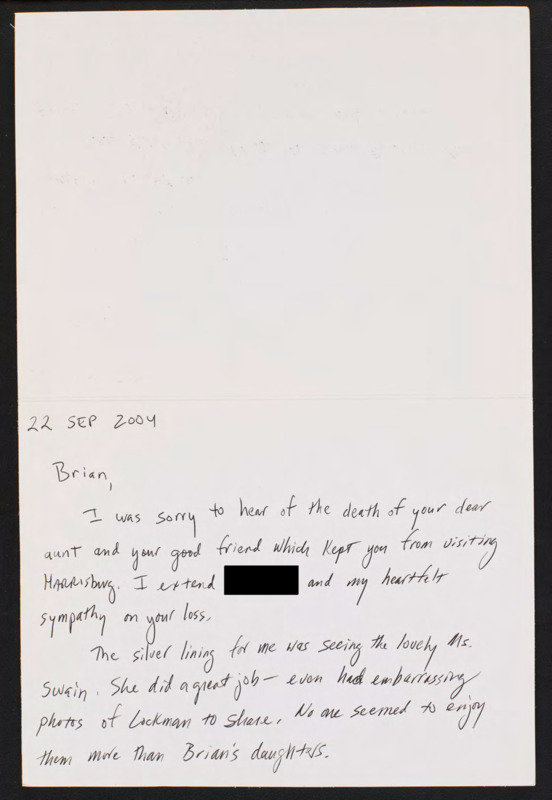 22 SEP 2004
Brian,
I was sorry to hear of the death of your dear
aunt and your good friend which kept you from visiting
HARRISburg. I extend and my heartfelt
sympathy on your loss.
The silver lining for me was seeing the lovely Ms.
Swain. She did a great job - even had embarrassing
photos of Lockman to share. No one seemed to enjoy
them more than Brian's daughters.